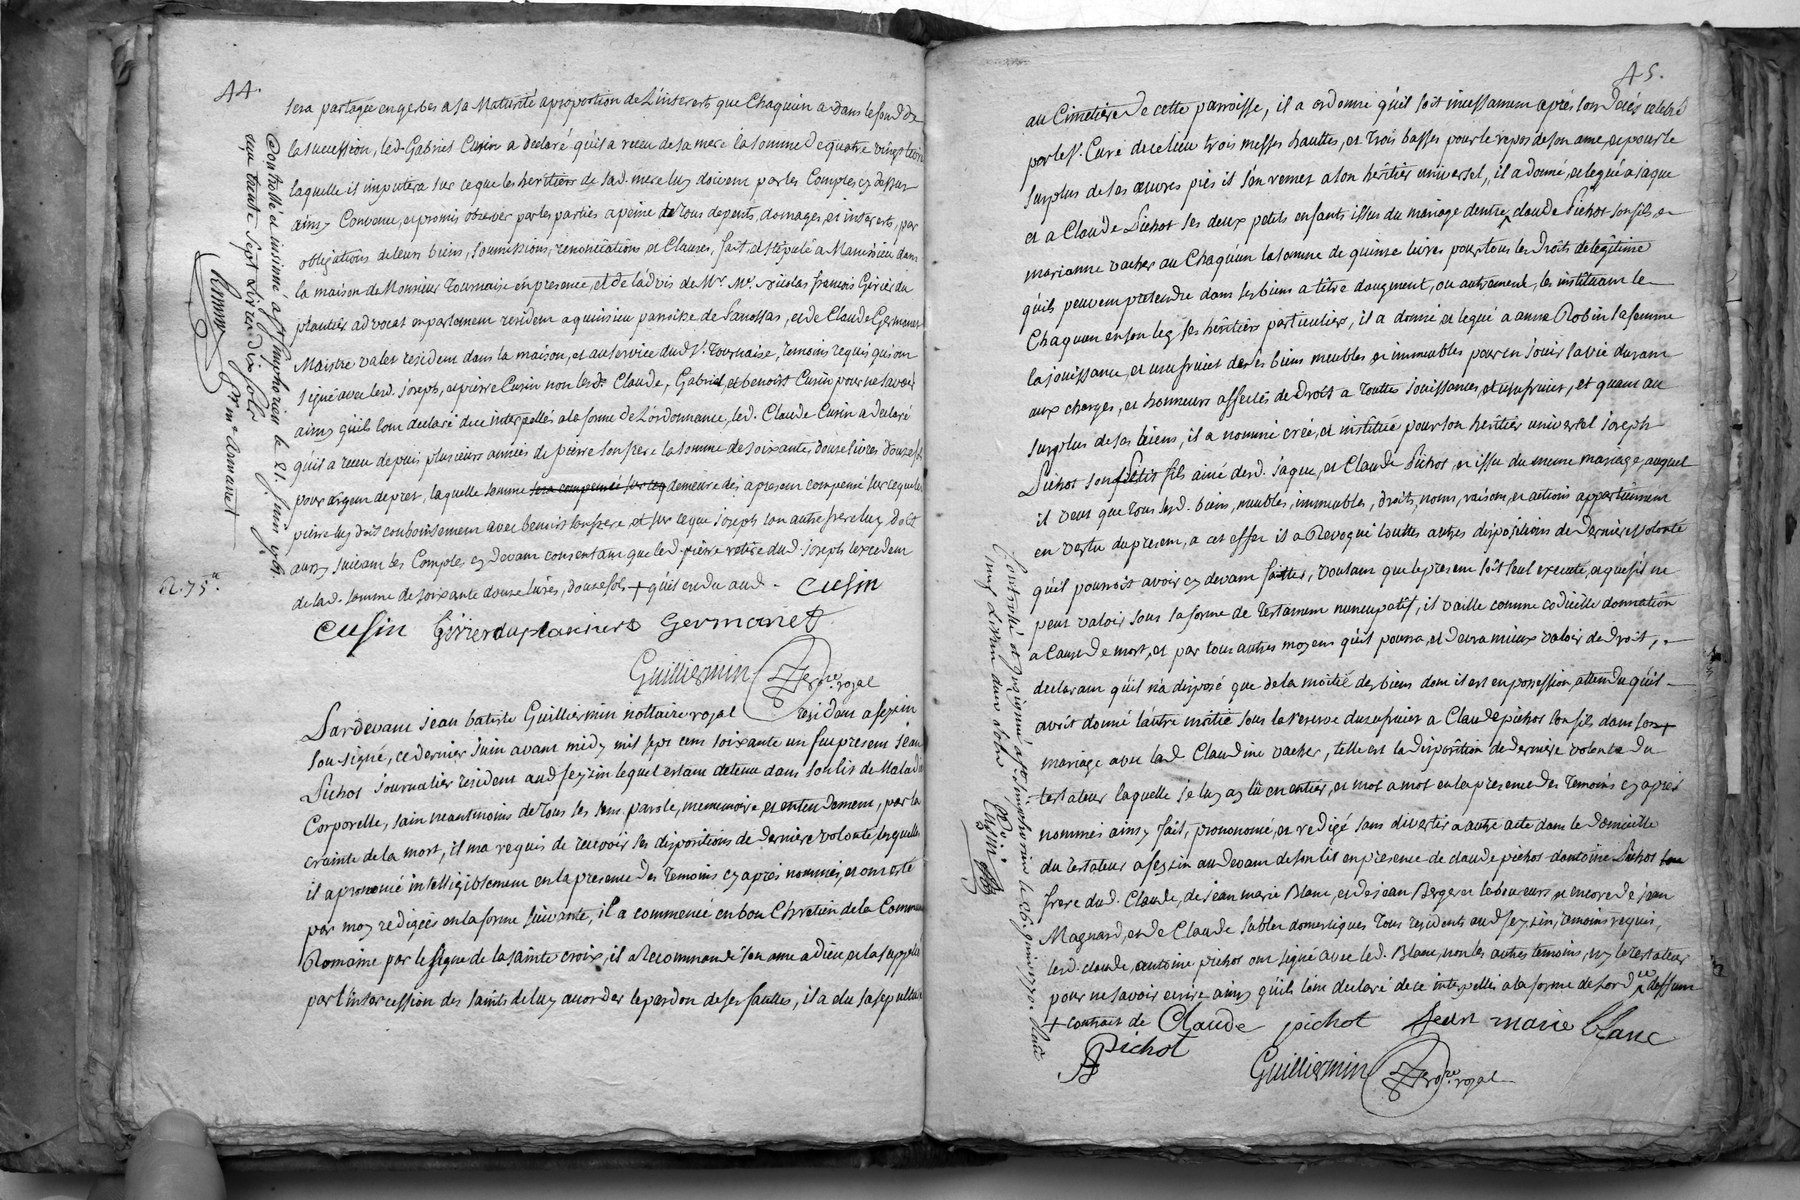 44.
sera partagée en gerbes a sa Maturité a proportion de L'interests que Chaquun a dans le fond de
la succession, led. Gabriel Cusin a declaré qu'il a receu de sa mere la somme de quatre vingt trois
laquelle il imputera sur ce que les heritiers de sad. mere luy doivent par les Comptes cy dessus
ainsy Convenu, et promis observer par les parties a peine de tous depents, domages, et interests, par
obligations de leurs biens, soumissions, renonciations et Clauses, fait et stipulé a Manissieu dans
la maison de Monsieur Tournaise en presence, et de l'advis de Mr. Me. Nicolas françois Girier du
plantier advocat en parlement resident a quinsieu parroisse de Panossas, et de Claude Germanet
Maistre valet resident dans la maison, et au service dud. Sr. Tournaise, temoins requis qui ont
signé avec lesd. joseph, et pierre Cusin non lesds. Claude, Gabriel, et benoist Cusin pour ne savoir
ainsy qu'ils l'ont declaré de ce interpellés a la forme de L'ordonnance, led. Claude Cusin a declaré
qu'il a receu depuis plusieurs années de pierre son frere la somme de soixante, douze livres, douze sols
pour argent de pret, laquelle somme sera compensée sur ceq demeure des a present compensé sur ce que led.
pierre luy doit conjointement avec benoist son frere, et sur ce que joseph son autre frere luy doit
aussy suivant les Comptes cy devant consentant que led. pierre retire dud. joseph l'excedent
de lad. somme de soixante douze livres, douze sols + qu'il en du aud. Cusin
R. 75ll.
Cusin Girier du plantier Germanet
Guilliermin Nore. royal
Controllé et insinué a St. Simphorien le 21. juin 1761.
reçu trente sept Livres dix sols
Pardevant jean batiste Guilliermin nottaire royal resident a feyzin
sousigné, ce dernier juin avant midy mil sept cens soixante un fut present jean
Pichot journalier resident aud. feyzin lequel estant detenu dans son lit de Maladie
Corporelle, sain neantmoins de tous ses sens parole, memmoire et entendement, par la
crainte de la mort, il m'a requis de recevoir ses dispositions de derniere volonté, lesquelles
il a prononcé intelligiblement en la presence des temoins cy après nommés, et ont esté
par moy redigées en la forme suivante, il a commencé en bon Chretien de la Communion
Romaine par le signe de la sainte croix, il a Recommandé son ame a dieu, et la supplié
par l'intercession des saints de luy accorder le pardon de ses fautes, il a elu sa sepulture
45.
au Cimetiere de cette parroisse, il a ordonné qu'il soit incessament après son Decés celebré
par le Sr. Curé de ce lieu trois messes hauttes, et trois basses pour le repos de son ame, et pour le
surplus de ses œuvres pies il s'en remet a son héritier universel, il a donné, et legué a jaque
et a Claude Pichot ses deux petits enfants issus du mariage d'entre claude Pichot son fils, et
marianne vacher au Chaquun la somme de quinse livres pour tous les Droits de legitime
qu'ils peuvent pretendre dans ses biens a titre d'augment, ou autrement, les instituant le
Chaquun en son leg ses héritiers particuliers, il a donné, et legué a anne Robin sa femme
la jouissance, et usufruit de ses biens meubles et immeubles pour en jouir sa vie durant
aux charges, et honneurs affectés de Droit a Touttes jouissances, et usufruits, et quant au
surplus de ses biens, il a nommé creé, et institué pour son héritier universel joseph
Pichot son petit fils ainé desd. jaque, et Claude Pichot, et issu du meme mariage, auquel
il veut que tous sesd. biens, meubles, immeubles, droits, noms, raisons, et actions appartiennent
en vertu du present, a cet effet il a Revoqué touttes autres dispositions de derniere volonté
qu'il pourroit avoir cy devant faittes, voulant que le present soit seul executé, et que s'il ne
peut valoir sous la forme de testament nuncupatif, il vaille comme codicille donnation
a Cause de mort, et par tous autres moyens qu'il pourra, et devra mieux valoir de droit,
declarant qu'il n'a disposé que de la moitié des biens dont il est en possession, attendu qu'il
avoit donné l'autre moitié sous la reserve d'usufruit a Claude pichot son fils dans son +
mariage avec lad. Claudine vacher, telle est la disposition de derniere volonté du
testateur laquelle je luy ay lü en entier, et mot a mot en la presence des temoins cy après
nommés ainsy fait, prononcé, et redigé sans divertir a autre acte dans le Domicille
du testateur a feyzin au devant de son lit en presence de claude pichot d'antoine Pichot son
frere dud. Claude, de jean marie Blanc, et de jean Berger et laboureurs et encore de jean
Magnard, et de Claude sablon domestiques tous residents aud. feyzin, temoins requis,
lesd. claude, antoine pichot ont signé avec led. Blanc, non les autres temoins, ny le testateur
pour ne savoir ecrire ainsy qu'ils l'ont declaré de ce interpellés a la forme de l'ordce. dessus
+ contrat de Claude pichot Jean marie blanc
Pichot
Guilliermin Nore. royal